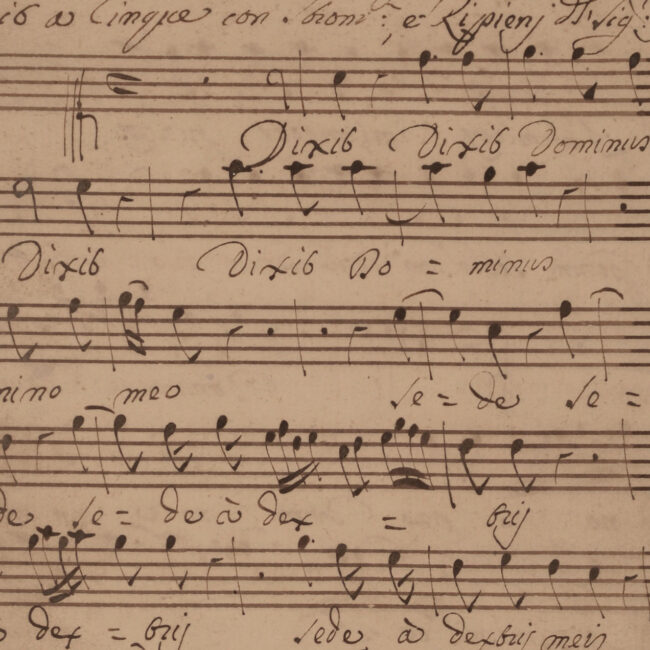 a Cinque con Strom: e Ripienj
Dixit Dixit Dominus
Dixit Dixit Do = minus
mino meo se = de se =
de se = de à dex = trij
dex = trij sede à dextrij meis